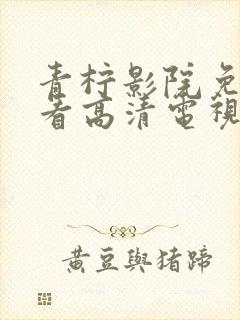 青柠影院免
看高清電視
黃豆與猪蹄